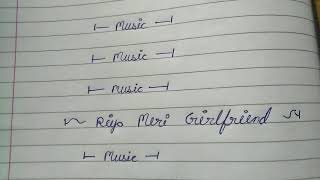 ⊢ Music ⊣
⊢ Music ⊣
⊢ Music ⊣
~ Riya Meri Girlfriend ~
⊢ Music ⊣